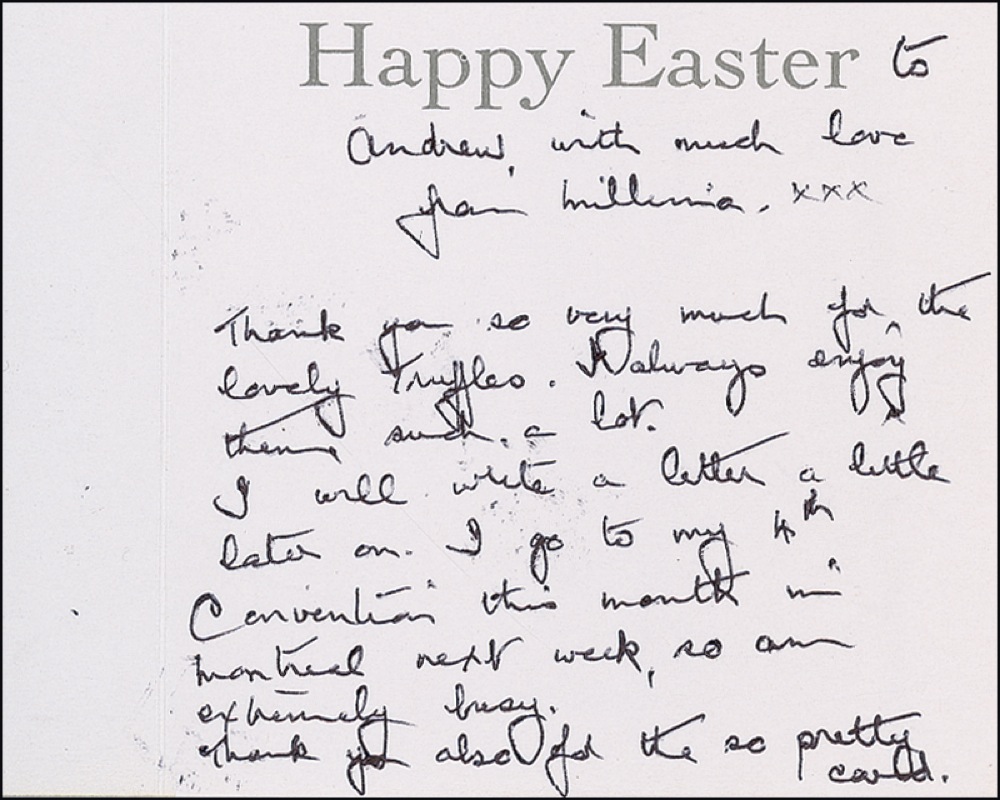 Happy Easter to
Andrew, with much love
from Millvina. xxx
Thank you so very much for the
lovely Truffles. I always enjoy
them such a lot.
I will write a letter a little
later on. I go to my 4th
Convention this month in
Montreal next week, so am
extremely busy.
Thank you also for the so pretty
card.